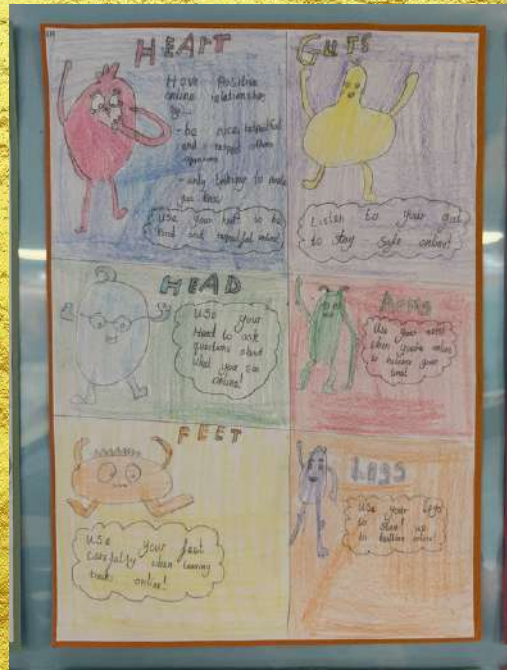 HEART
Have Positive
online relationships
by...
- be nice, respectful
and respect others
opinions
- only talking to people
you know
Use your heart to be
kind and respectful online!
GUTS
Listen to your gut
to stay safe online!
HEAD
Use your
Head to ask
questions about
what you see
online!
ARMS
Use your arms
when you're online
to balance your
time!
FEET
Use your feet
carefully when leaving
tracks online!
LEGS
Use your legs
to stand up
to bullies online!